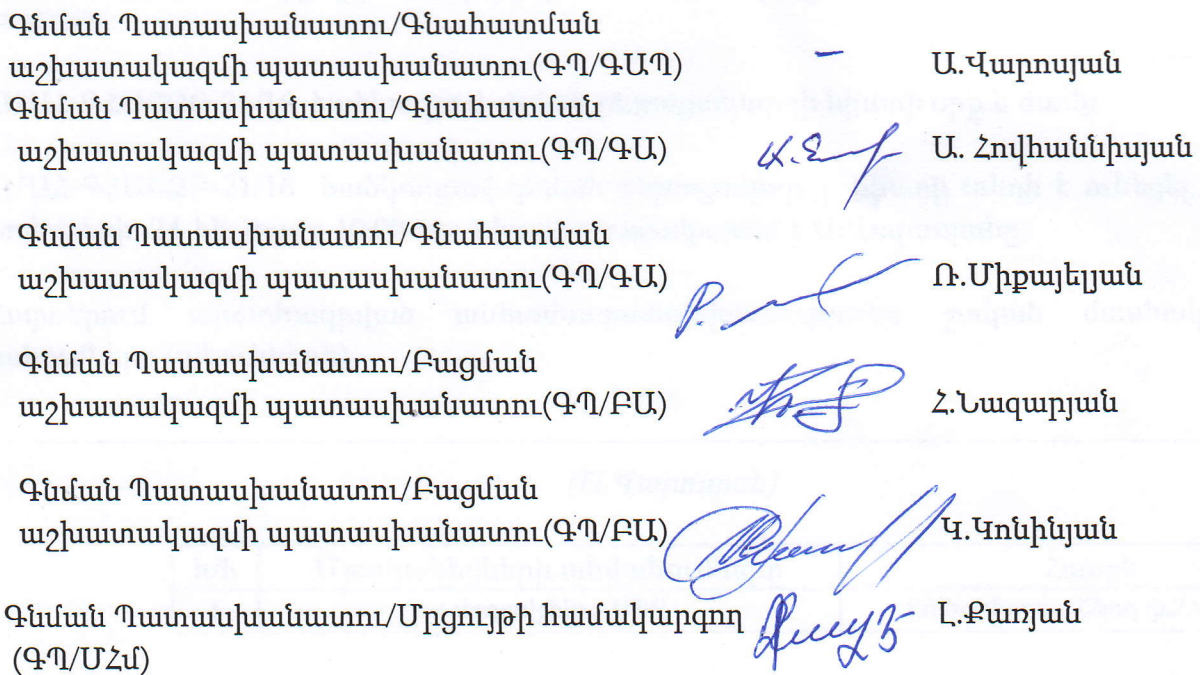 Գնման Պատասխանատու/Գնահատման
աշխատակազմի պատասխանատու(ԳՊ/ԳԱՊ) – Ա.Վարոսյան
Գնման Պատասխանատու/Գնահատման
աշխատակազմի պատասխանատու(ԳՊ/ԳԱ) Ա. Հովհաննիսյան
Գնման Պատասխանատու/Գնահատման
աշխատակազմի պատասխանատու(ԳՊ/ԳԱ) Ռ.Միքայելյան
Գնման Պատասխանատու/Բացման
աշխատակազմի պատասխանատու(ԳՊ/ԲԱ) Հ.Նազարյան
Գնման Պատասխանատու/Բացման
աշխատակազմի պատասխանատու(ԳՊ/ԲԱ) Կ.Կոնինյան
Գնման Պատասխանատու/Մրցույթի համակարգող Լ.Քառյան
(ԳՊ/ՄՀմ)